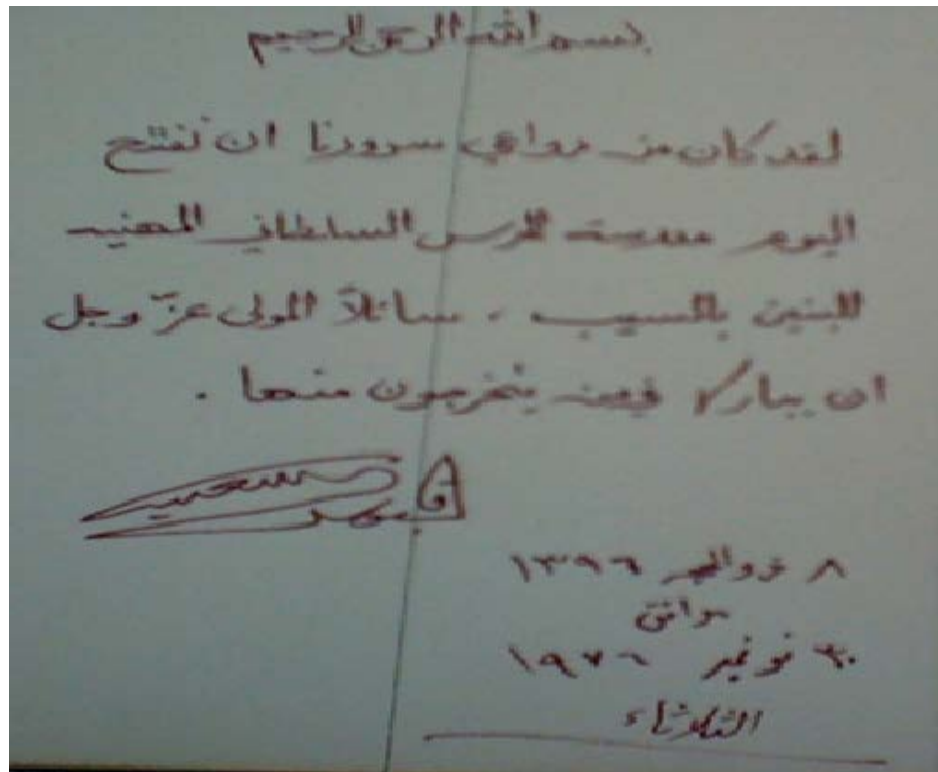 بسم الله الرحمن الرحيم
لقد كان من دواعي سرورنا ان نفتتح
اليوم مدرسة الحرس السلطاني المهنيه
للبنين بالسيب ، سائلاً المولى عزّ وجل
ان يبارك فيمن يتخرجون منها .
قابوس بن سعيد
٨ ذو الحجه ١٣٩٦
موافق
٣٠ نوفمبر ١٩٧٦
الثلاثاء